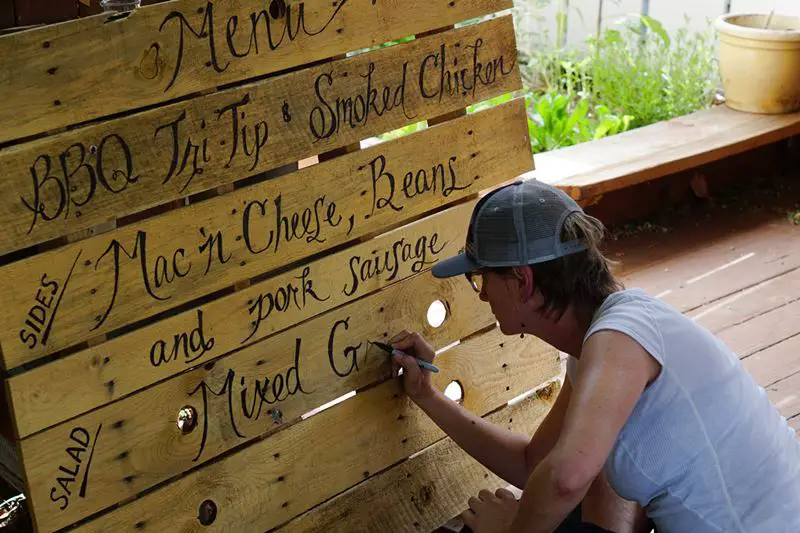 Menu
BBQ Tri Tip & Smoked Chicken
SIDES/ Mac 'n Cheese, Beans
and pork sausage
SALAD/ Mixed G